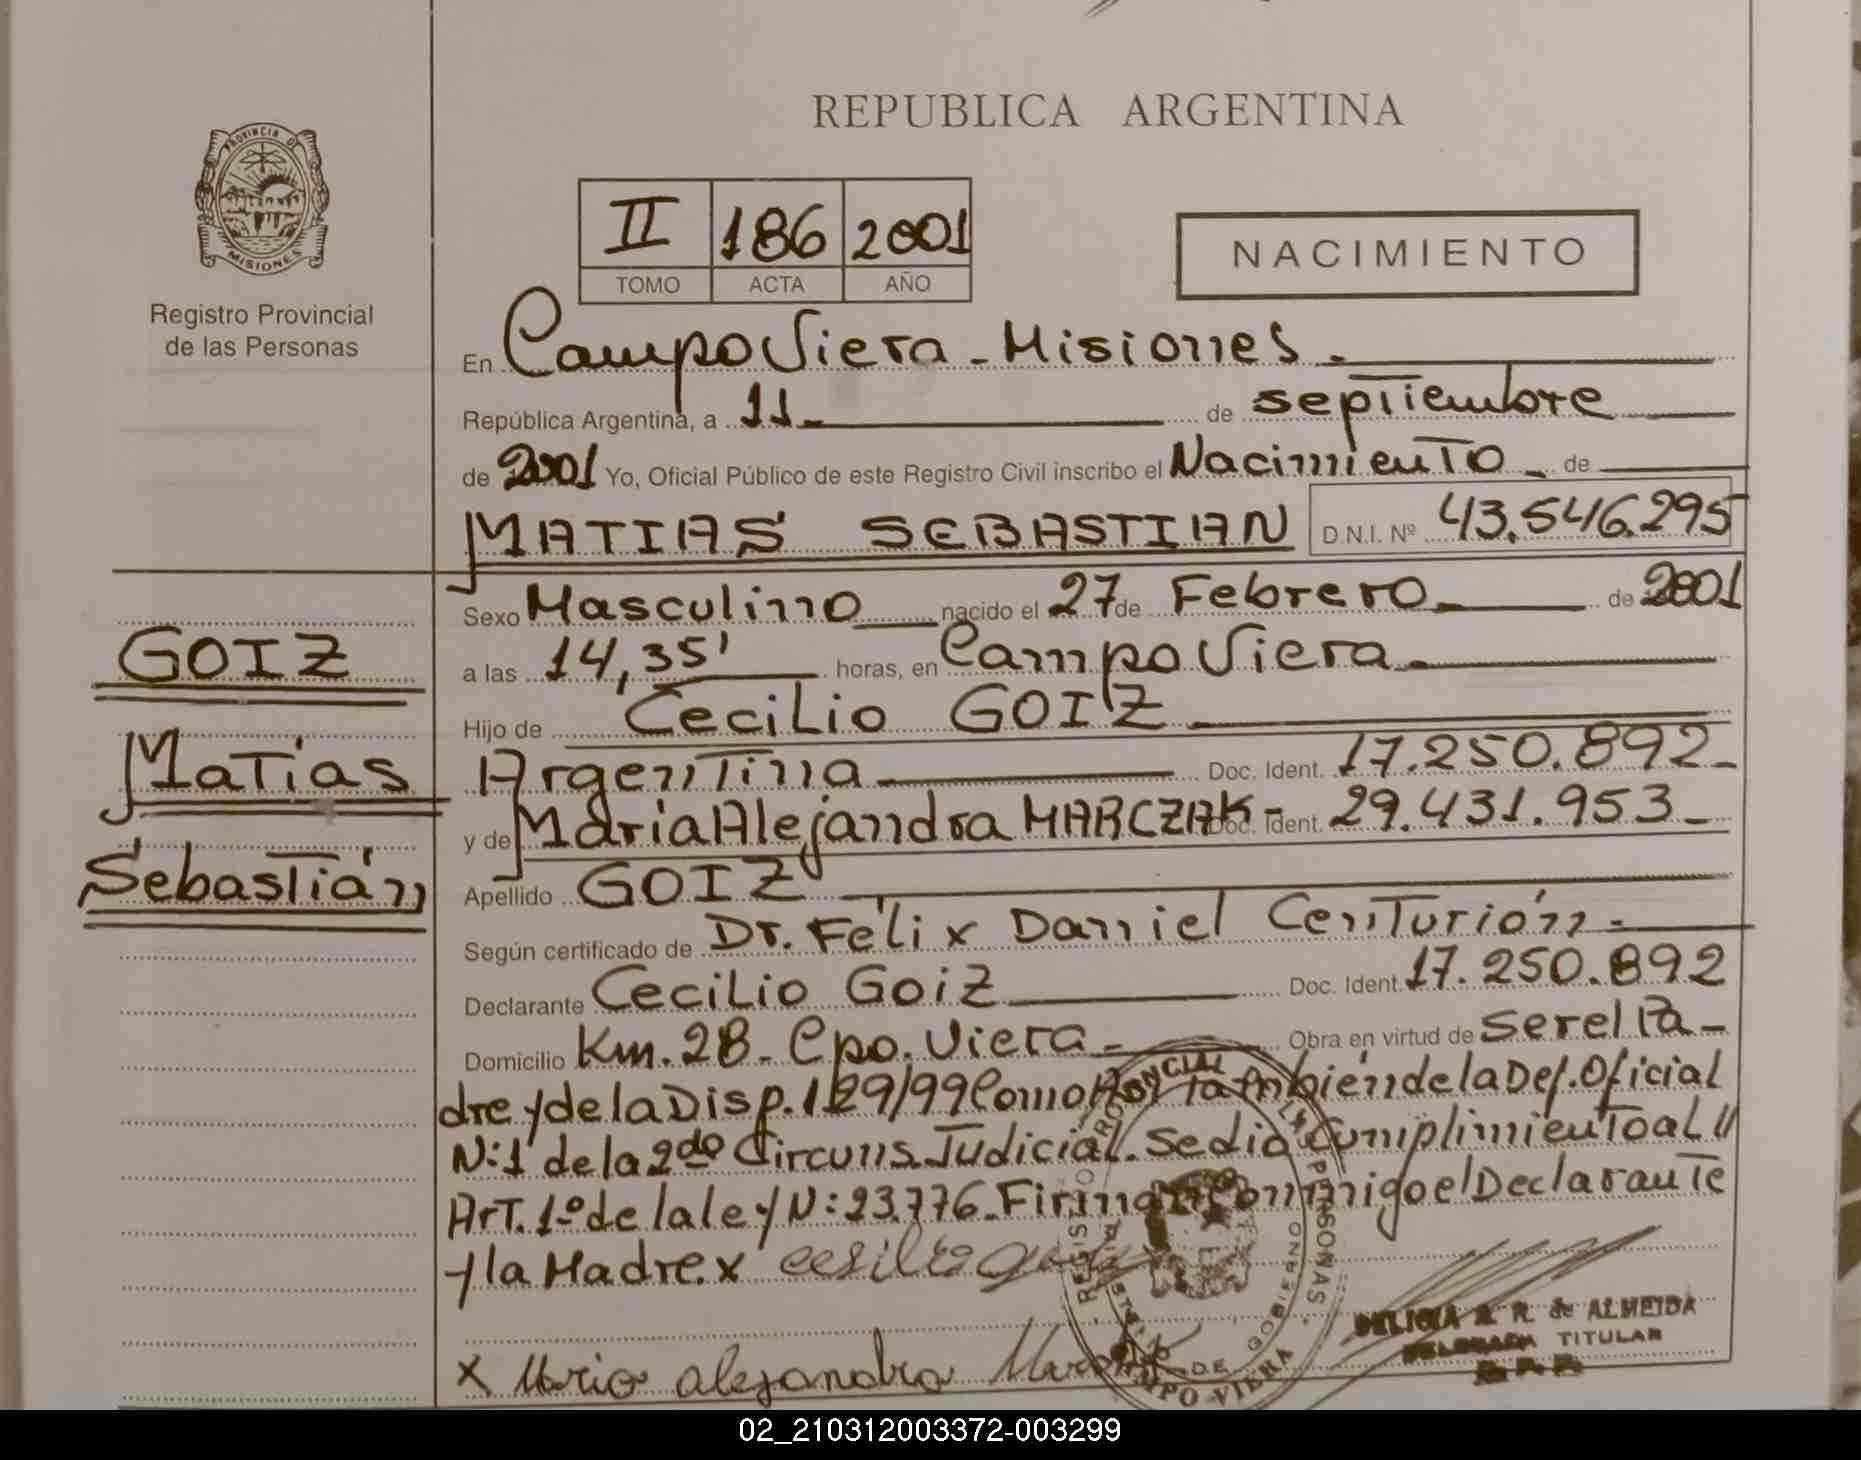 REPUBLICA ARGENTINA
PROVINCIA DE
MISIONES
Registro Provincial
de las Personas
II 186 2001
TOMO ACTA AÑO
NACIMIENTO
En Campo Viera - Misiones.
República Argentina, a 11 de septiembre
de 2001 Yo, Oficial Público de este Registro Civil inscribo el Nacimiento de
MATIAS SEBASTIAN D.N.I. Nº 43.546.295
GOIZ
Matías
Sebastián
Sexo Masculino nacido el 27 de Febrero de 2001
a las 14,35' horas, en Campo Viera
Hijo de Cecilio GOIZ
Argentina Doc. Ident. 17.250.892
y de María Alejandra MARCZAK - Doc. Ident. 29.431.953
Apellido GOIZ
Según certificado de Dr. Félix Daniel Centurión.
Declarante Cecilio Goiz Doc. Ident. 17.250.892
Domicilio Km. 28 - Cpo. Viera - Obra en virtud de ser el Pa-
dre y de la Disp. 129/99 Como Así también de la Def. Oficial
N:1 de la 2da Circuns. Judicial. Se dio Cumplimiento al
Art. 1º de la ley N: 23.776. Firman Conmigo el Declarante
y la Madre. x
x Maria alejandra
REGISTRO PROVINCIAL DE LAS PERSONAS
DE GOBIERNO
CAMPO VIERA
R. de ALMEIDA
DELEGADA TITULAR
02_210312003372-003299